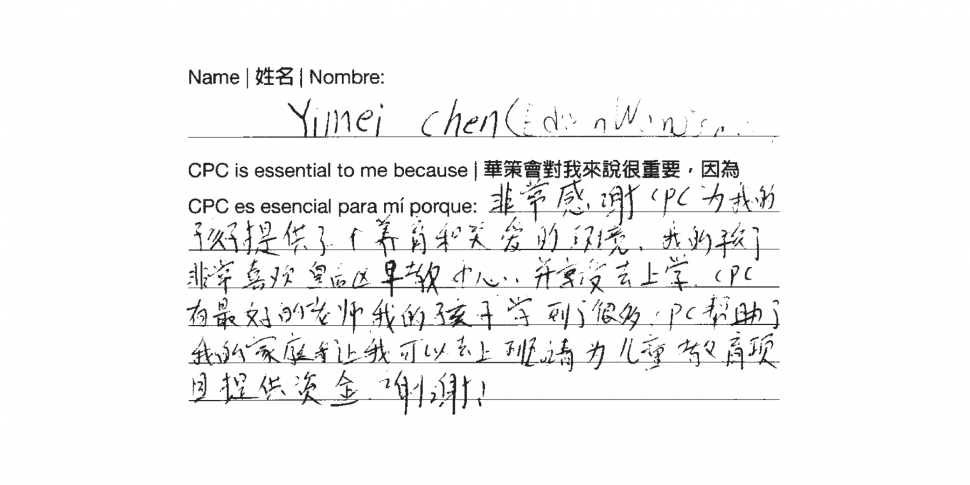 Name | 姓名 | Nombre:
Yimei Chen (
CPC is essential to me because | 華策會對我來說很重要，因為
CPC es esencial para mí porque: 非常感谢CPC为我的
孩子提供了个养育和关爱的环境，我的孩子
非常喜欢皇后区早教中心，并享受去上学。CPC
有最好的老师我的孩子学到了很多，CPC帮助了
我的家庭并让我可以去上班请为儿童教育项
目提供资金。谢谢！